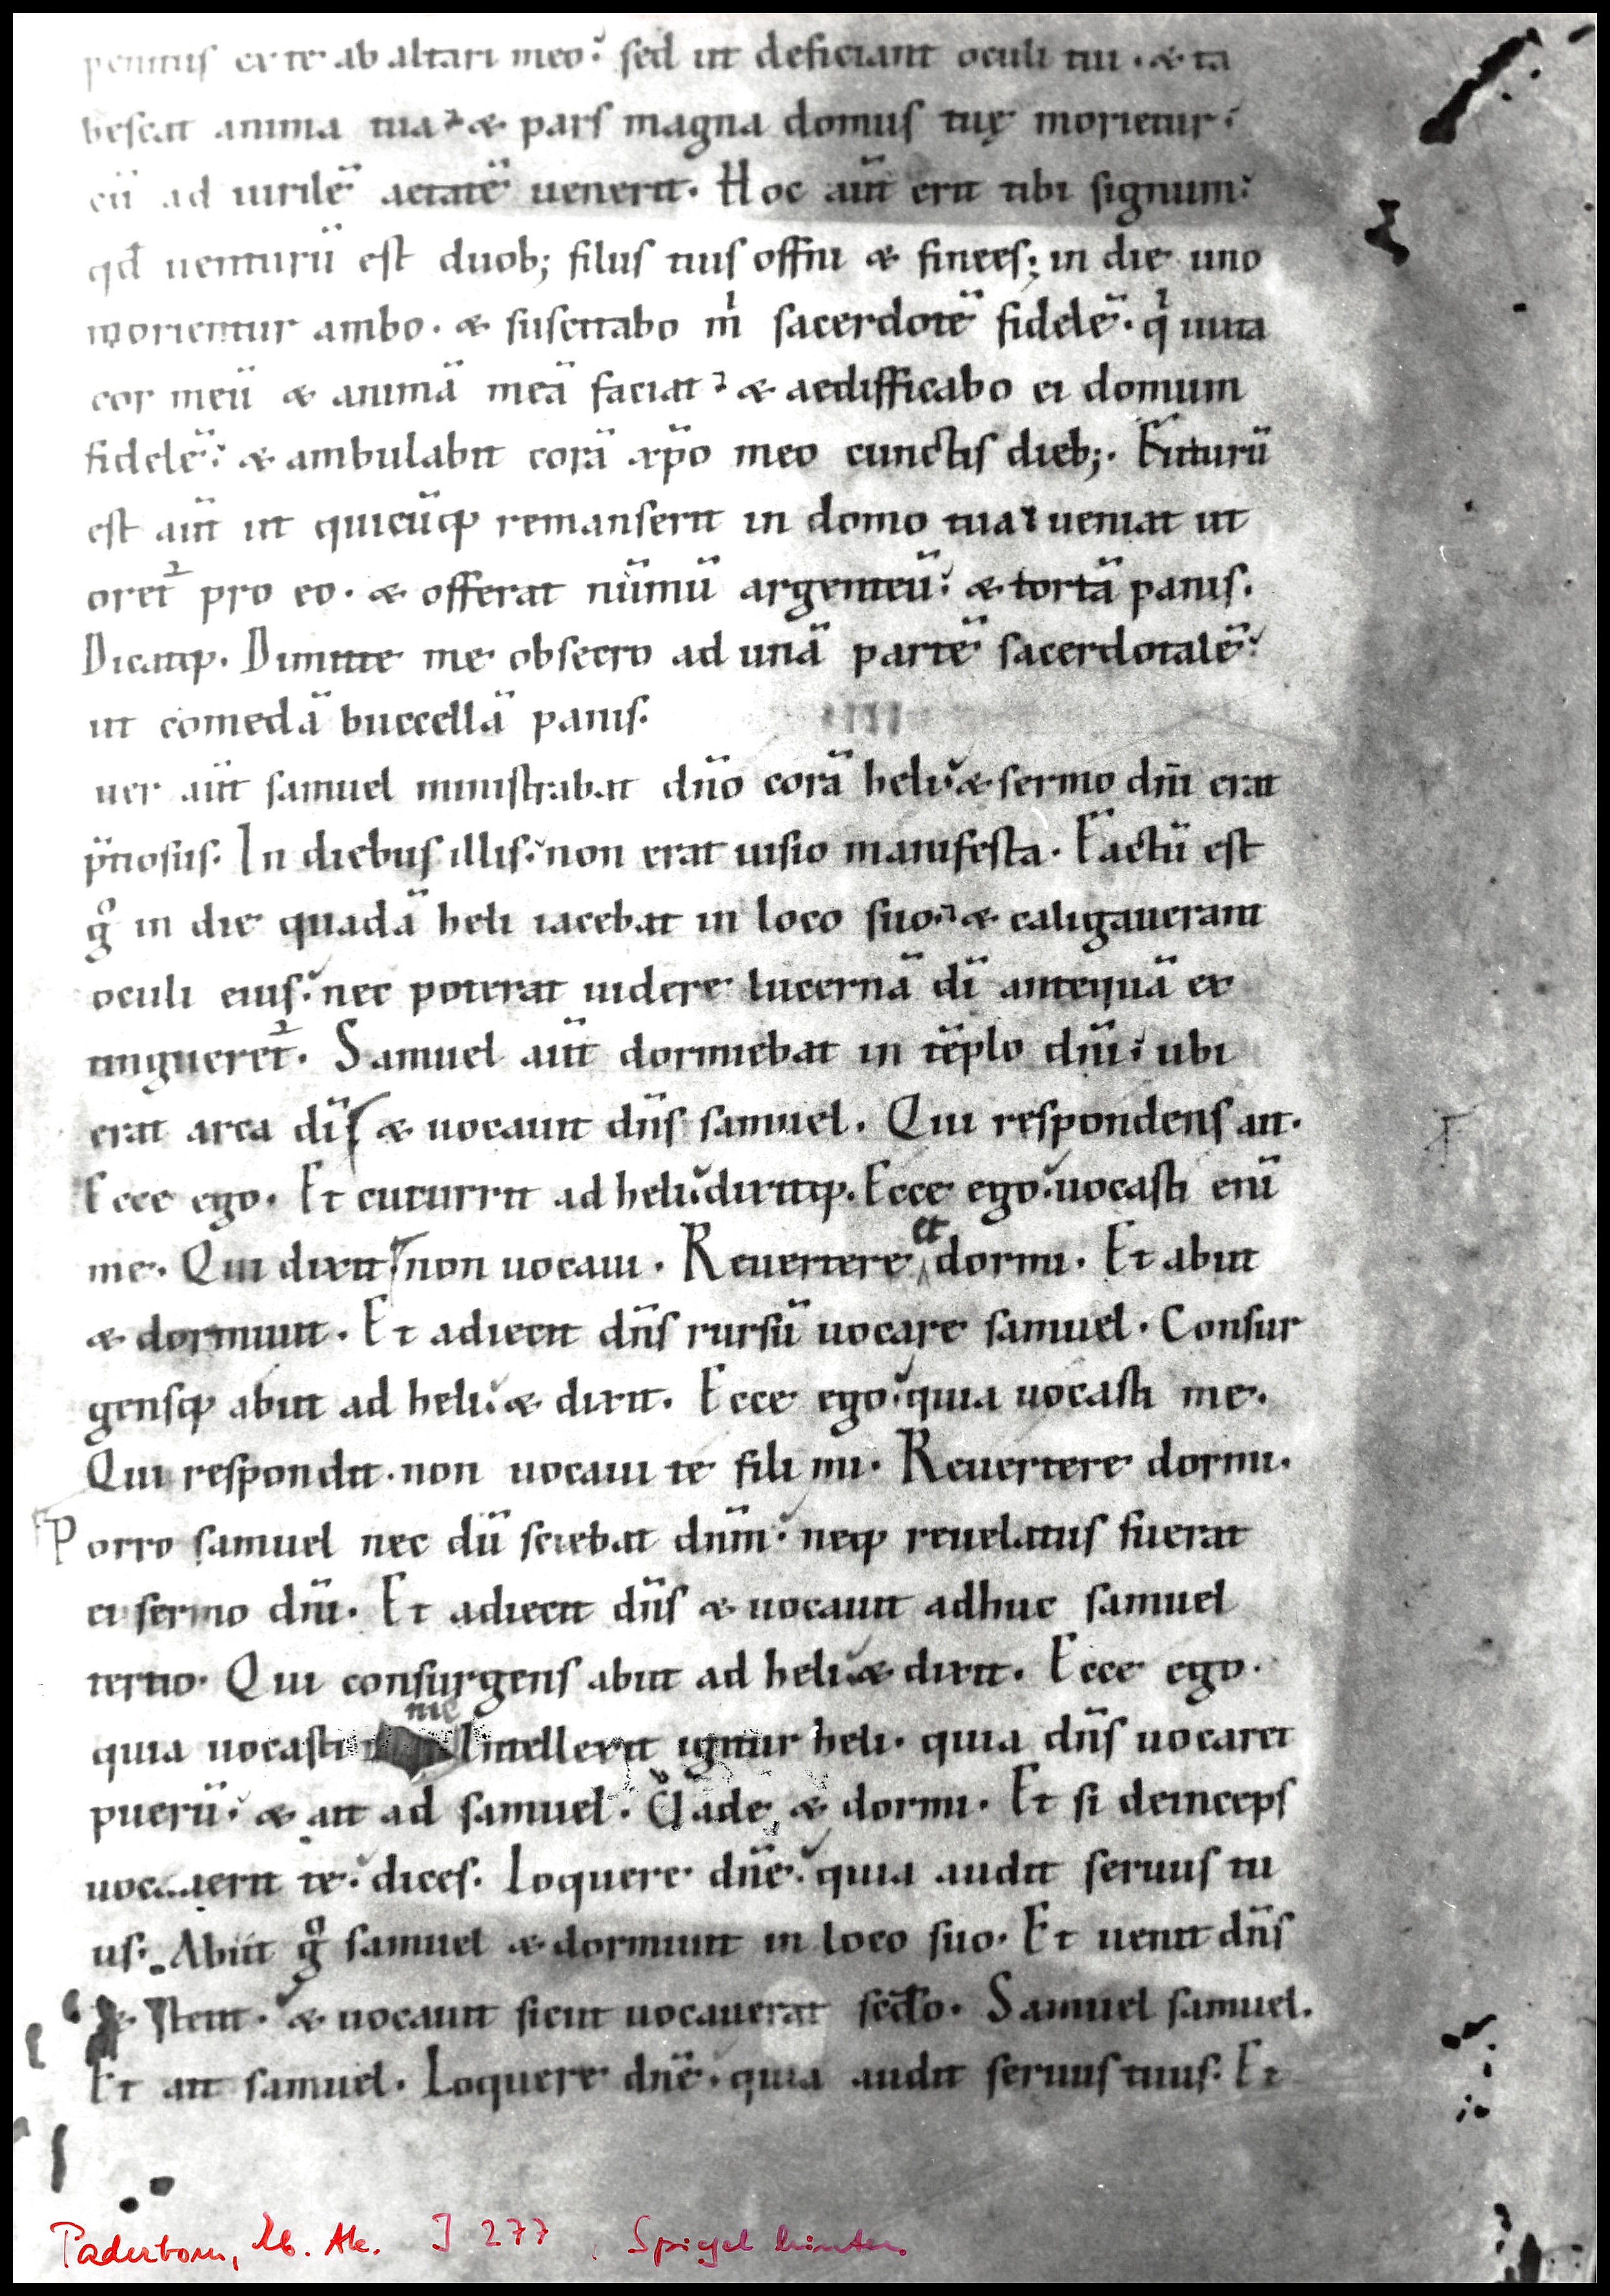 penitus ex te ab altari meo. sed ut deficiant oculi tui. & ta
bescat anima tua. & pars magna domus tuę morietur.
cū ad uirilē aetatē uenerit. Hoc aūt erit tibi signum.
qđ uenturū est duob; filiis tuis offni & finees; in die uno
morientur ambo. & suscitabo m̍ sacerdotē fidelē. q̍ iuxta
cor meū & animā meā faciat. & aedifficabo ei domum
fidelē. & ambulabit corā xp̄o meo cunctis dieb;. Futurū
est aūt ut quicūq; remanserit in domo tua. ueniat ut
oret᷑ pro eo. & offerat nūmū argenteū. & tortā panis.
Dicatq;. Dimitte me obsecro ad unā partē sacerdotalē.
ut comedā buccellā panis.
uer aūt samuel ministrabat dn̄o corā heli. & sermo dn̄i erat
p̄tiosus. In diebus illis. non erat uisio manifesta. Factū est
g̊ in die quadā heli iacebat in loco suo. & caligauerant
oculi eius. nec poterat uidere lucernā dī antequā ex
tingueret᷑. Samuel aūt dormiebat in tēplo dn̄i. ubi
erat arca dī & uocauit dn̄s samuel. Qui respondens ait.
Ecce ego. Et cucurrit ad heli. dixitq;. Ecce ego. uocasti enī
me. Qui dixit non uocaui. Reuertere et dormi. Et abiit
& dormiuit. Et adiecit dn̄s rursū uocare samuel. Consur
gensq; abiit ad heli. & dixit. Ecce ego. quia uocasti me.
Qui respondit. non uocaui te fili mi. Reuertere dormi.
Porro samuel nec dū sciebat dn̄m. neq; reuelatus fuerat
ei sermo dn̄i. Et adiecit dn̄s & uocauit adhuc samuel
tertio. Qui consurgens abiit ad heli. & dixit. Ecce ego.
quia uocasti me Intellexit igitur heli. quia dn̄s uocaret
puerū. & ait ad samuel. Uade & dormi. Et si deinceps
uocauerit te. dices. Loquere dn̄e. quia audit seruus tu
us. Abiit g̊ samuel & dormiuit in loco suo. Et uenit dn̄s
& stetit. & uocauit sicut uocauerat scđo. Samuel samuel.
Et ait samuel. Loquere dn̄e. quia audit seruus tuus. Et
Paderborn, Eb. Ak. J 277, Spiegel hinten